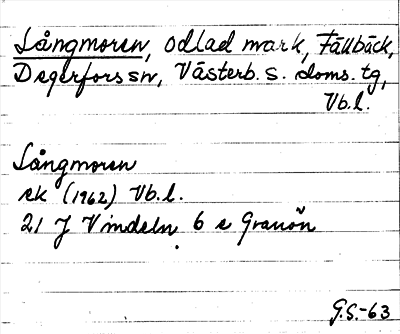 Långmoren, Odlad mark, Fällbäck,
Degerfors sn, Västerb. s. doms. tg,
Vb.l.
Långmoren
ek (1962) Vb.l.
21 J Vindeln 6 e Granön
G.S.-63